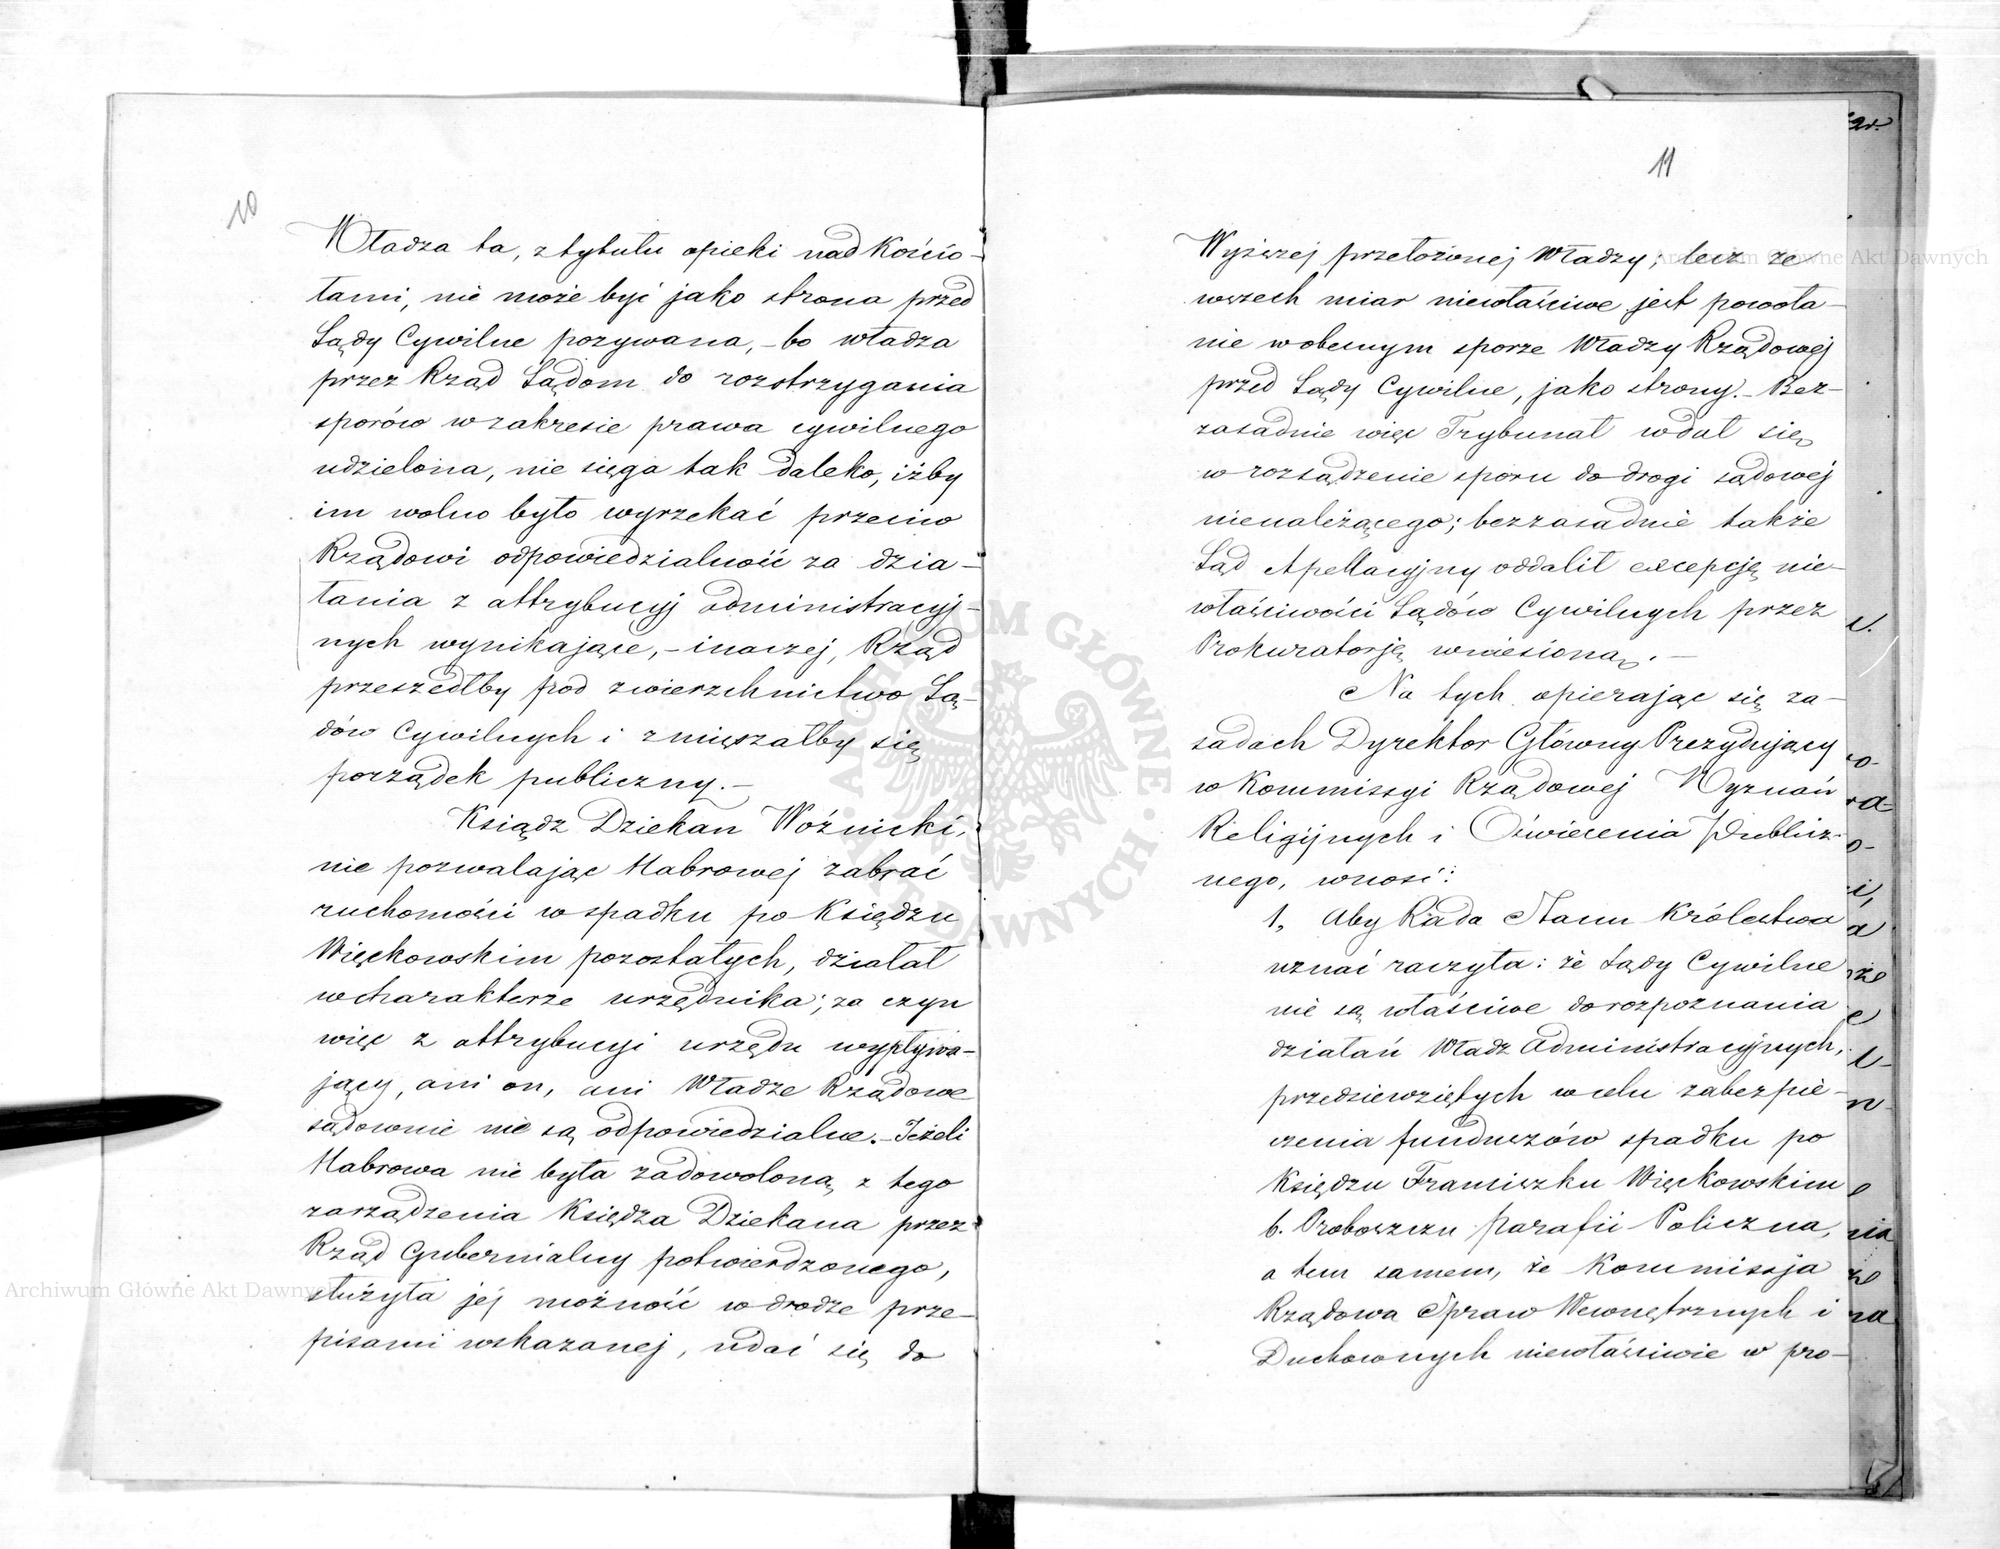 10
Władza ta, z tytułu opieki nad Kościo-
łami, nie może być jako strona przed
Sądy Cywilne pozywana, – bo władza
przez Rząd Sądom do rozstrzygania
sporów w zakresie prawa cywilnego
udzielona, nie sięga tak daleko, iżby
im wolno było wyrzekać przeciw
Rządowi odpowiedzialność za dzia-
łania z attrybucyj administracyj-
nych wynikające, – inaczej, Rząd
przeszedłby pod zwierzchnictwo Są-
dów Cywilnych i zmięszałby się
porządek publiczny. –
Ksiądz Dziekan Woźnicki,
nie pozwalając Habrowej zabrać
ruchomości w spadku po Księdzu
Więckowskim pozostałych, działał
w charakterze urzędnika; za czyn
więc z attrybucyi urzędu wypływa-
jący, ani on, ani Władze Rządowe
sądownie nie są odpowiedzialne. – Jeżeli
Habrowa nie była zadowoloną z tego
zarządzenia Księdza Dziekana przez
Rząd Gubernialny potwierdzonego,
służyła jej możność w drodze prze-
pisami wskazanej, udać się do
11
Wyższej przełożonej Władzy; lecz ze
wszech miar niewłaściwe jest powoła-
nie w obecnym sporze Władzy Rządowej
przed Sądy Cywilne, jako strony. – Bez-
zasadnie więc Trybunał wdał się
w rozsądzenie sporu do drogi sądowej
nienależącego; bezzasadnie także
Sąd Apellacyjny oddalił excepcję nie-
właściwości Sądów Cywilnych przez
Prokuratorję wniesioną. –
Na tych opierając się za-
sadach Dyrektor Główny Prezydujący
w Kommissyi Rządowej Wyznań
Religijnych i Oświecenia Publicz-
nego, wnosi:
1, Aby Rada Stanu Królestwa
uznać raczyła: że Sądy Cywilne
nie są właściwe do rozpoznania
działań Władz Administracyjnych,
przedsiewziętych w celu zabezpie-
czenia funduszów spadku po
Księdzu Franciszku Więckowskim
b. Proboszczu parafii Policzna,
a tem samem, że Kommissja
Rządowa Spraw Wewnętrznych i
Duchownych niewłaściwie w pro-
Archiwum Główne Akt Dawnych
Archiwum Główne Akt Dawnych
ARCHIWUM GŁÓWNE AKT DAWNYCH